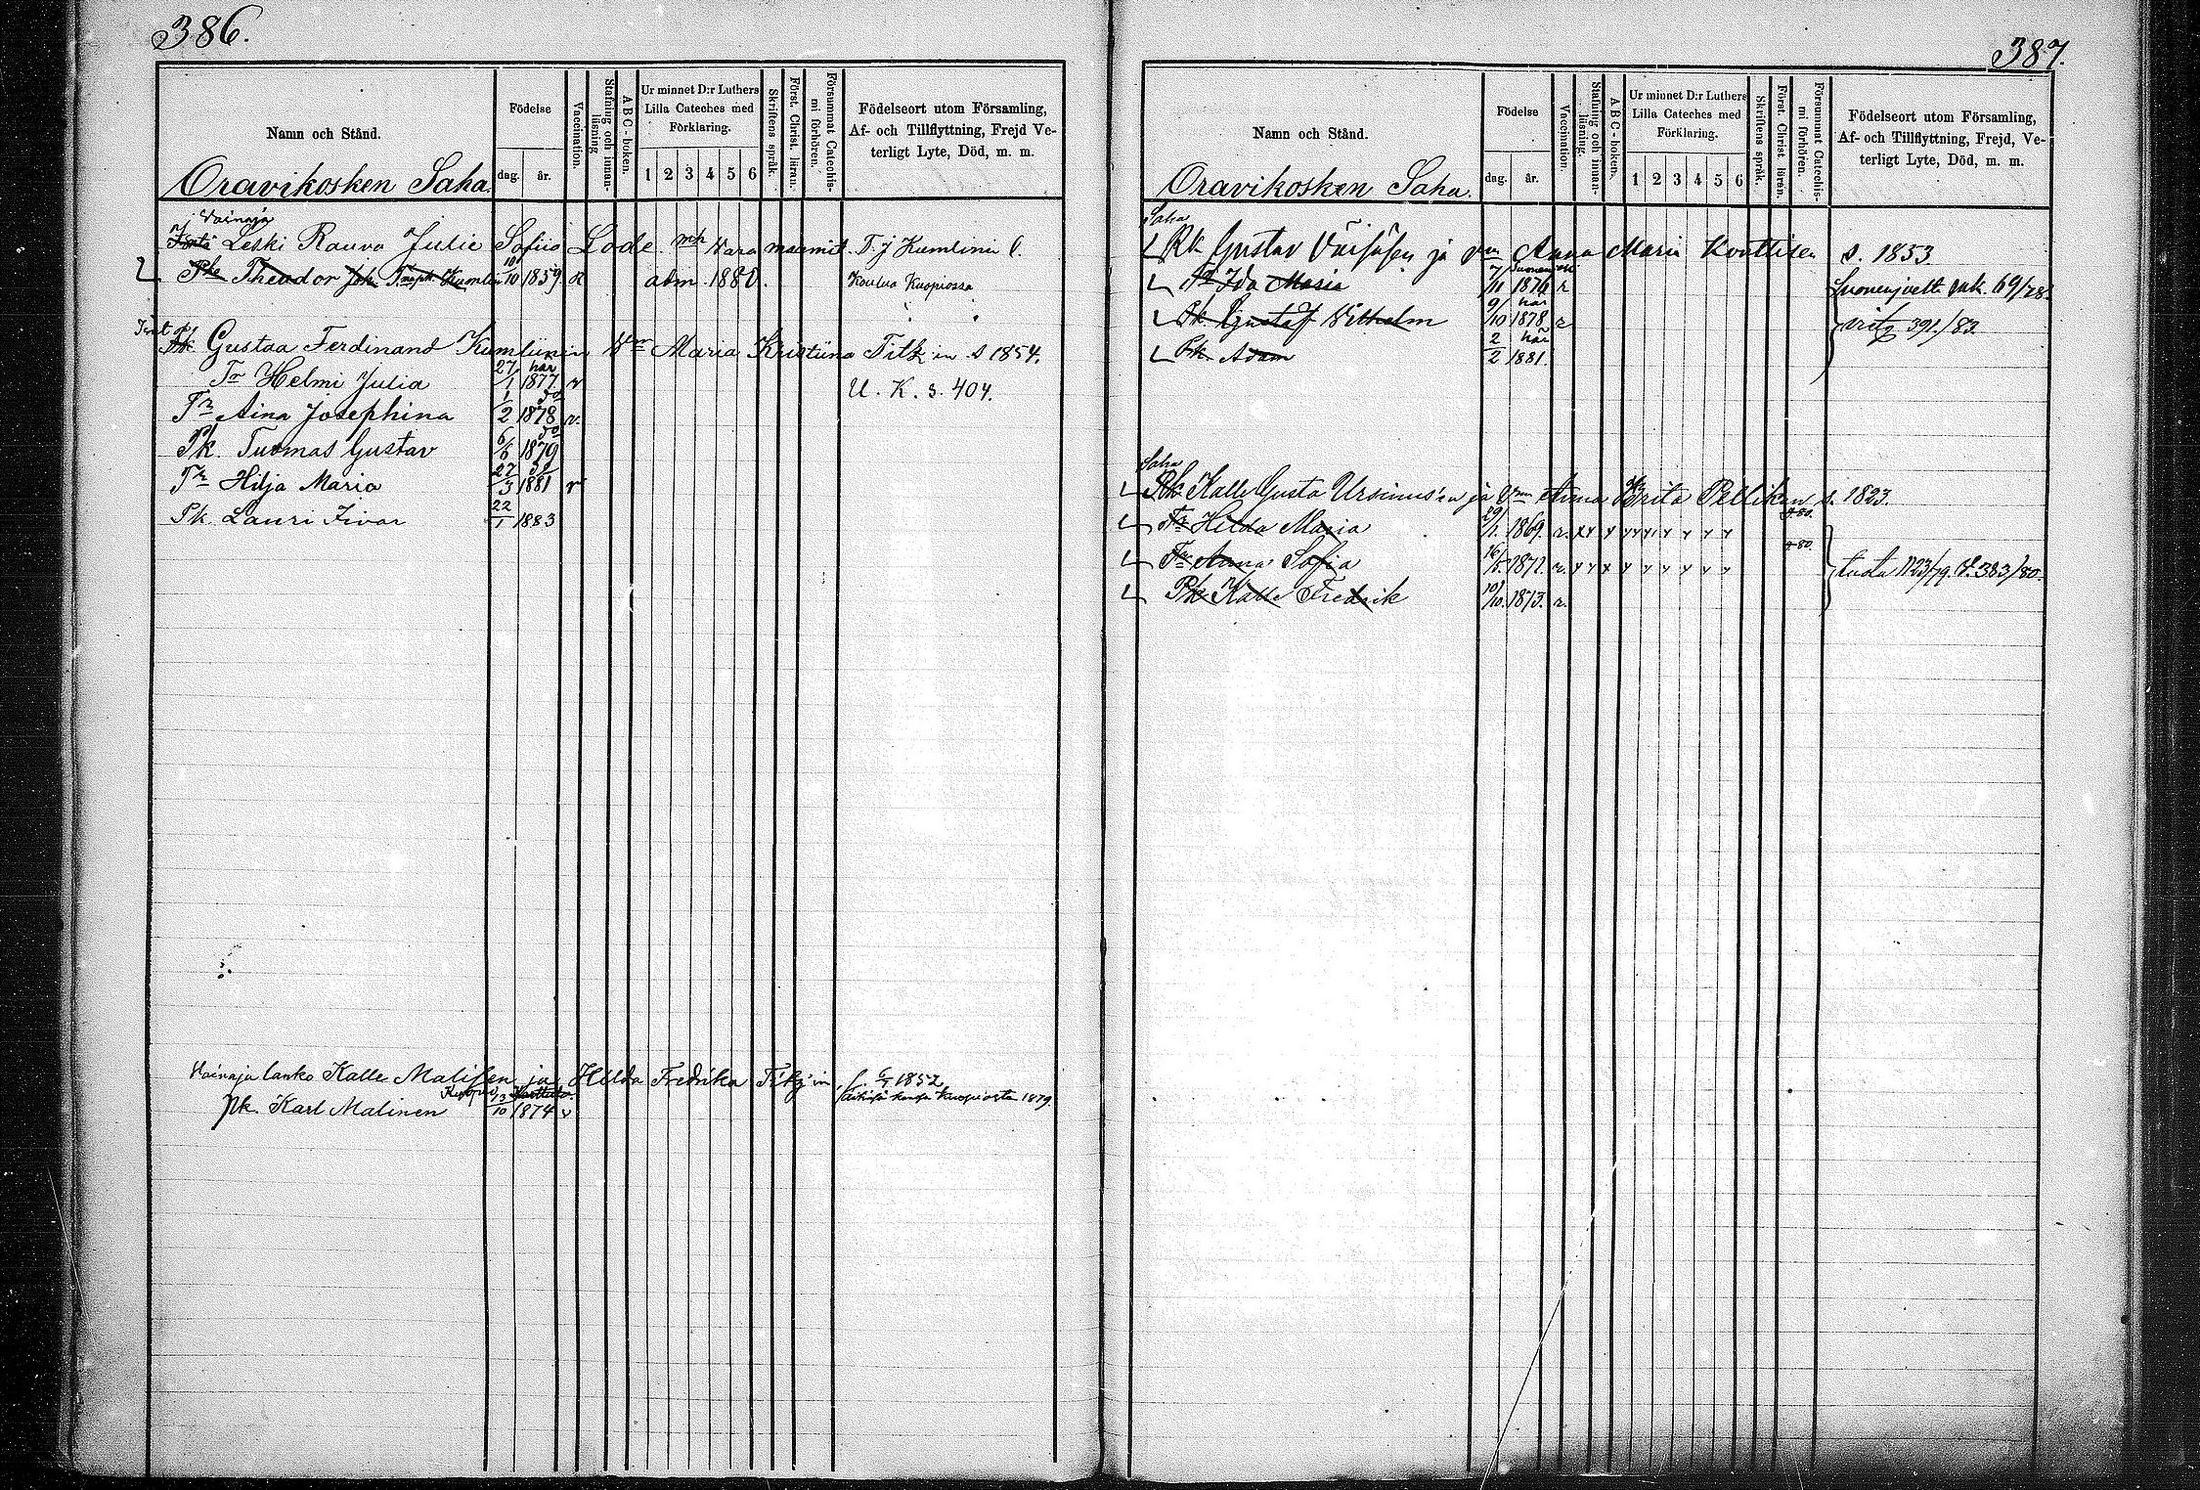 386.
Namn och Stånd.
Födelse
dag.
år.
Vaccination.
Stafning och innan-
läsning
ABC-boken.
Ur minnet D:r Luthers
Lilla Cateches med
Förklaring.
1 2 3 4 5 6
Skriftens språk.
Först. Christ. läran.
Försummat Catechis-
mi förhören.
Födelseort utom Församling,
Af- och Tillflyttning, Frejd Ve-
terligt Lyte, Död, m. m.
Oravikosken Saha.
Vainaja
Leski Rauva Julie Sofiia Lode T. J Kumlinin
Theodor Joh. Kumlin 10/10 1859. adm. 1880. Koulua Kuopiossa
Gustaa Ferdinand Kumlinin Vmo Maria Kristiina Titk:in s 1854.
27 här
Tr Helmi Julia /1 1877 v U. K. s. 404.
1 do
Tr Aina Josephina 2 1878 v.
6 do
Pk. Tuomas Gustav /6 1879
27 do
Tr Hilja Maria /3 1881 v
22
Pk. Lauri Iivar /1 1883
Vainaja lanko Kalle Malisen ja Hilda Fredrika 1852
pk. Karl Malinen /10 1874 v Kuopiosta 1879
387.
Namn och Stånd.
Födelse
dag.
år.
Vaccination.
Stafning och innan-
läsning.
ABC-boken.
Ur minnet D:r Luthers
Lilla Cateches med
Förklaring.
1 2 3 4 5 6
Skriftens språk.
Först. Christ läran.
Försummat Catechis-
mi förhören.
Födelseort utom Församling,
Af- och Tillflyttning, Frejd, Ve-
terligt Lyte, Död, m. m.
Oravikosken Saha.
Saha
Rk Gustav Väisäsen ja Vmo Anna Maria s. 1853.
7
Tr Ida Maria /11 1876 r 69/78.
9 här
Pk. Gustaf Vilhelm /10 1878 r 391/82
2 här
Pk. Adam /2 1881.
Saha
Rk Kalle Gusta Ursinus'en ja Vmo Anna Brita Pellikan s. 1823.
29
Tr Hilda Maria /1. 1869. r.
16
Tr Anna Sofia /5. 1871. r. 1123/79. 383/80.
10
Pk Kalle Fredrik /10. 1873. r.